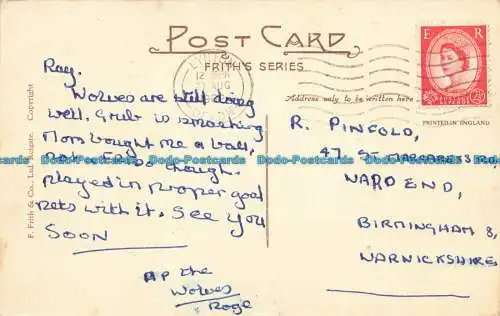 POST CARD
FRITH'S SERIES
Address only to be written here
PRINTED IN ENGLAND
E R
F. Frith & Co., Ltd., Reigate. Copyright
Ray.
Wolves are still doing
well. Grub is smashing
Mom bought me a ball,
though.
Played in proper goal
nets with it. See You
SOON
up the
Wolves
Roge
R. PINFOLD,
47, ST. MARGARETS RD,
WARD END,
BIRMINGHAM 8,
WARWICKSHIRE
Dodo-Postcards Dodo-Postcards Dodo-Postcards